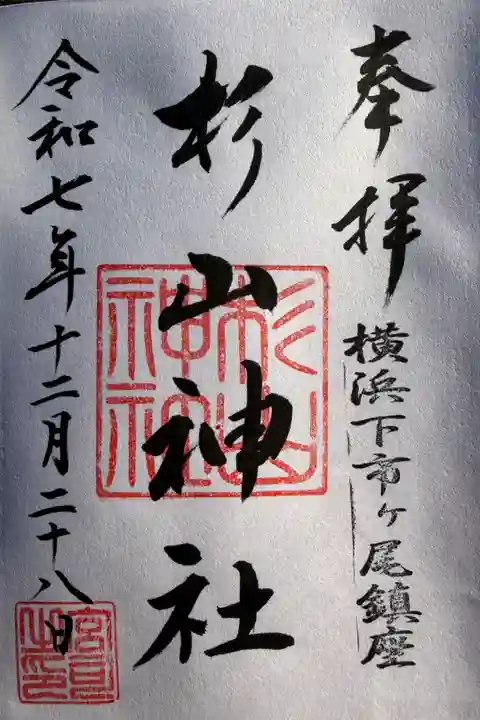 奉拝
横浜下市ヶ尾鎮座
杉山神社
杉山神社
令和七年十二月二十八日
宮司之印